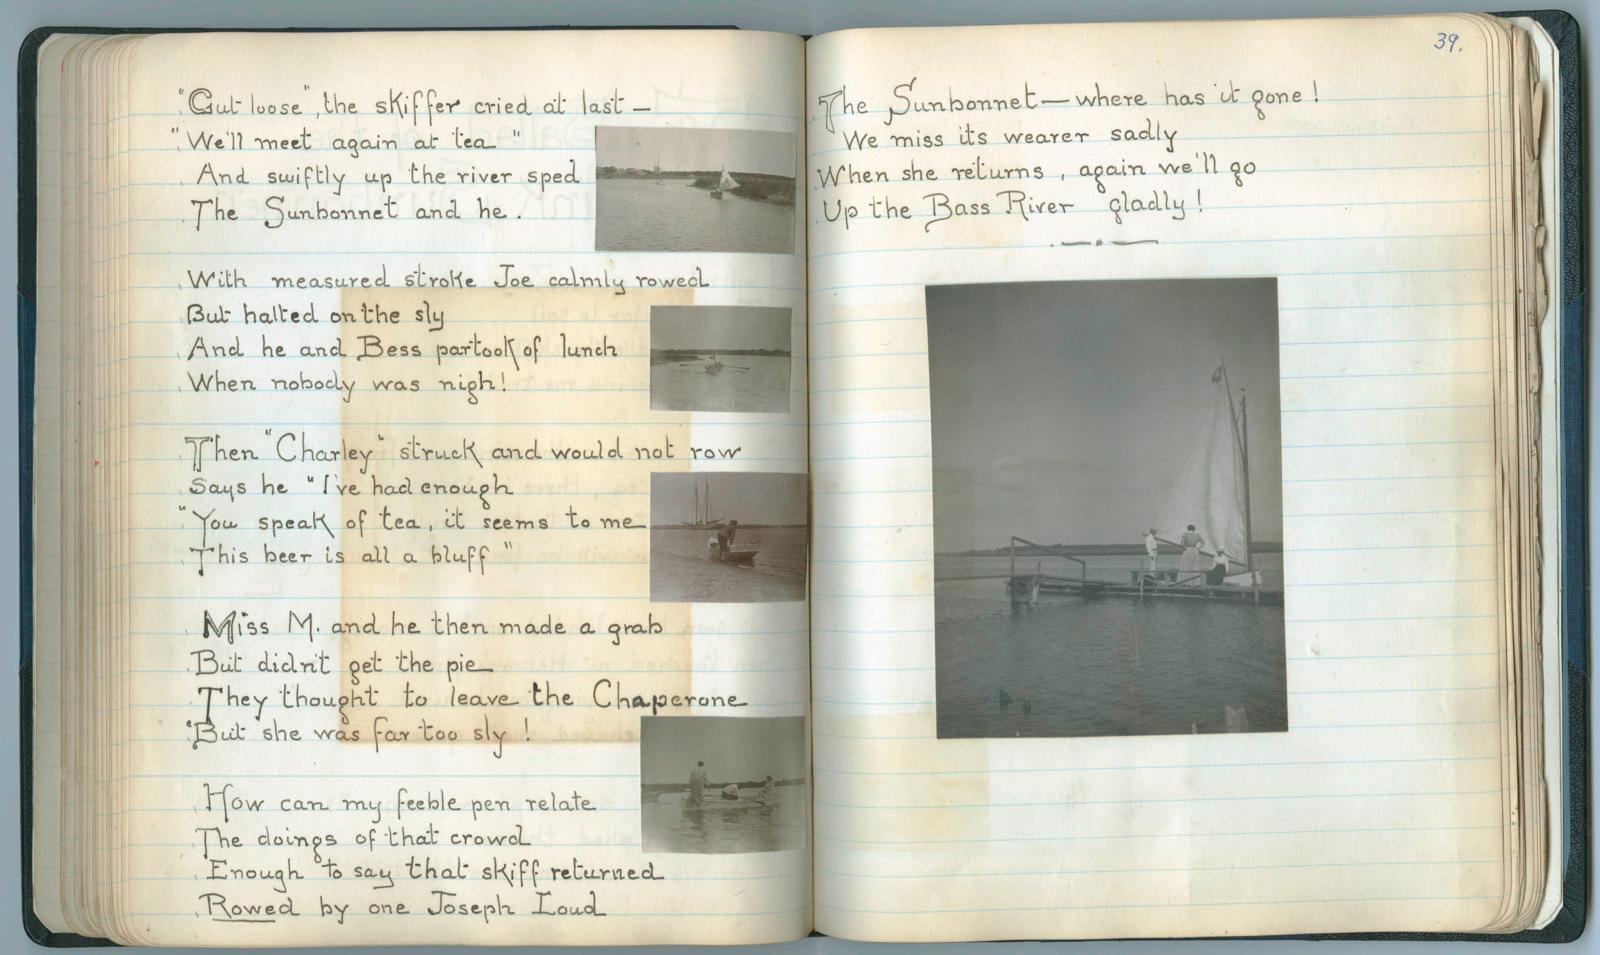 "Cut loose", the skiffer cried at last —
"We'll meet again at tea"
And swiftly up the river sped
The Sunbonnet and he.
With measured stroke Joe calmly rowed
But halted on the sly
And he and Bess partook of lunch
When nobody was nigh!
Then "Charley" struck and would not row
Says he "I've had enough
"You speak of tea, it seems to me
This beer is all a bluff"
Miss M. and he then made a grab
But didn't get the pie
They thought to leave the Chaperone
But she was far too sly!
How can my feeble pen relate
The doings of that crowd
Enough to say that skiff returned
Rowed by one Joseph Loud
39.
The Sunbonnet — where has it gone!
We miss its wearer sadly
When she returns, again we'll go
Up the Bass River gladly!